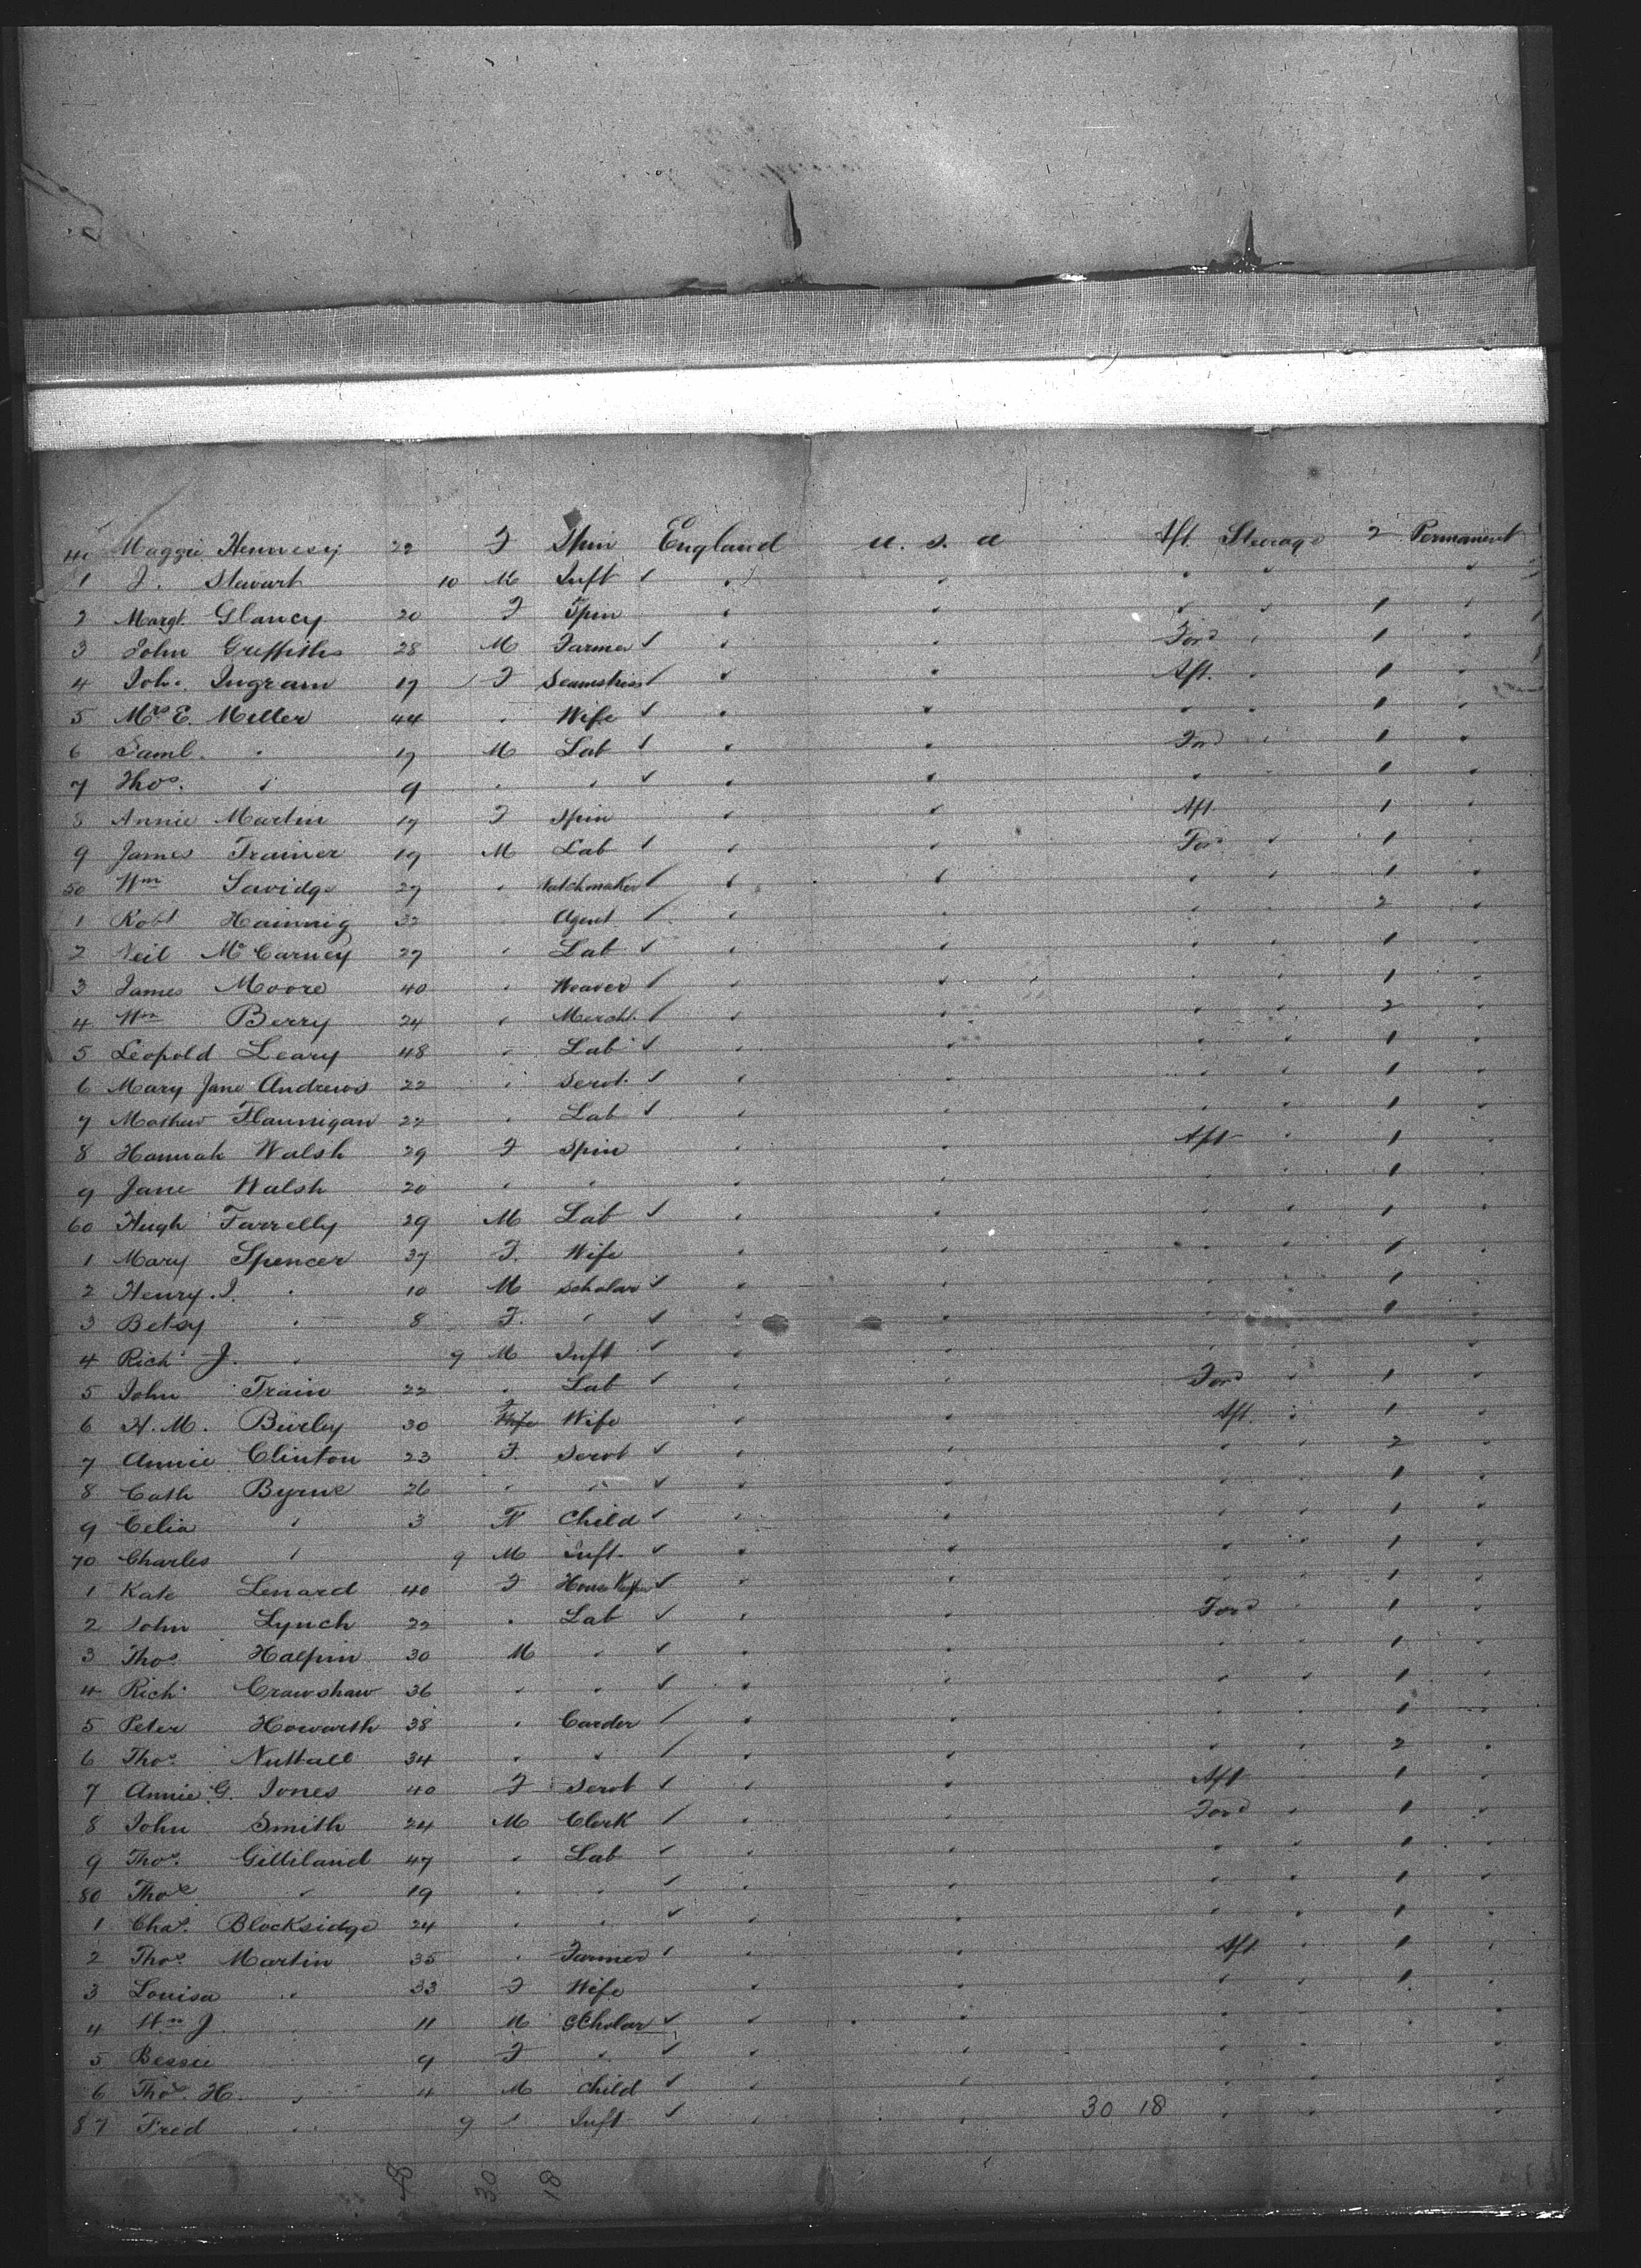 40 Maggie Hennesy 22 F Spin England U. S. A Aft. Steerage 2 Permanent
1 J. Stewart 10 M Inft ✓ " " " " "
2 Margt. Glancy 20 F Spin " " " " 1 "
3 John Griffiths 28 M Farmer ✓ " " Ford " 1 "
4 Joh. Ingram 17 F Seamstress ✓ " " Aft. " 1 "
5 Mrs E. Miller 44 " Wife ✓ " " " " 1 "
6 Saml. " 17 M Lab ✓ " " Ford " 1 "
7 Thos. " 9 " " ✓ " " " " 1 "
8 Annie Martin 19 F Spin " " Aft 1 "
9 James Trainer 19 M Lab ✓ " " For " 1 "
50 Wm Savidge 27 " Watchmaker ✓ " " " " 1 "
1 Robt Hainnig 32 Agent ✓ " " " " 2 "
2 Neil McCarney 27 " Lab ✓ " " " " 1 "
3 James Moore 40 " Weaver ✓ " " " " 1 "
4 Wm Berry 24 " Mercht. ✓ " " " " 2 "
5 Leopold Leary 48 " Lab ✓ " " " " 1 "
6 Mary Jane Andrews 22 " Servt. ✓ " " " " 1 "
7 Mathew Flannigan 22 " Lab ✓ " " " " 1 "
8 Hannah Walsh 29 F Spin " " Aft " 1 "
9 Jane Walsh 20 " " " " " " 1 "
60 Hugh Farrelly 29 M Lab ✓ " " " " 1 "
1 Mary Spencer 37 F. Wife " " " " 1 "
2 Henry. J. " 10 M Scholar ✓ " " " " 1 "
3 Betsy " 8 F. " ✓ " " " " 1 "
4 Rich J. " 9 M Inft ✓ " " " " "
5 John Train 22 " Lab ✓ " " Ford " 1 "
6 H. M. Burley 30 F Wife Wife " " Aft. " 1 "
7 Annie Clinton 23 F. Servt ✓ " " " " 2 "
8 Cath Byrne 26 " " ✓ " " " " 1 "
9 Celia " 3 F Child ✓ " " " " 1 "
70 Charles " 9 M Inft. ✓ " " " " 1 "
1 Kate Lenard 40 F House Keeper ✓ " " " " 1 "
2 John Lynch 22 " Lab ✓ " " Ford " 1 "
3 Thos. Halpin 30 M " ✓ " " " " 1 "
4 Rich. Crawshaw 36 " " ✓ " " " " 1 "
5 Peter Howarth 38 " Carder ✓ " " " " 1 "
6 Thos. Nuttall 34 " " ✓ " " " " 2 "
7 Annie. G. Jones 40 F Servt ✓ " " Aft " 1 "
8 John Smith 24 M Clerk ✓ " " Ford " 1 "
9 Thos. Gilliland 47 " Lab ✓ " " " " 1 "
80 Thos " 19 " " ✓ " " " " 1 "
1 Chas. Blocksidge 24 " " ✓ " " " " 1 "
2 Thos Martin 35 " Farmer ✓ " " Aft " 1 "
3 Louisa " 33 F Wife " " " " 1 "
4 Wm J " 11 M Scholar ✓ " " " "
5 Bessie 9 F " ✓ " " " " "
6 Thos. H. " 4 M Child ✓ " " " " "
87 Fred " 9 " Inft ✓ " " 30 18 " " "
48 30 18